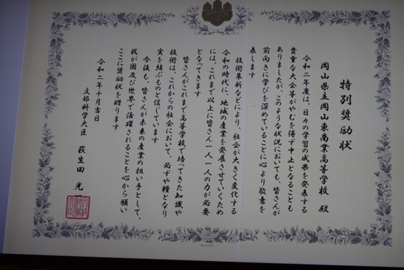 特別奨励状
岡山県立岡山東商業高等学校 殿
令和二年度は、日々の学習の成果を発表する
貴重な大会等がやむを得ず中止となることも
ありましたが、このような状況においても、皆さんが
前向きに学びを深めていることに心より敬意を
表します
技術革新などにより、社会が大きく変化する
令和の時代に、地域の産業を発展させていくため
には、これまで以上に皆さん一人一人の力が必要
となってきます
皆さんがこれまで高等学校で培ってきた知識や
技術は、これからの社会において、必ずや糧となり
実を結ぶものと信じています
今後も、皆さんが未来の産業の担い手として、
我が国及び世界で活躍されることを心から願い
ここに奨励状を贈ります
令和二年十月
文部科学大臣 萩生田 光一